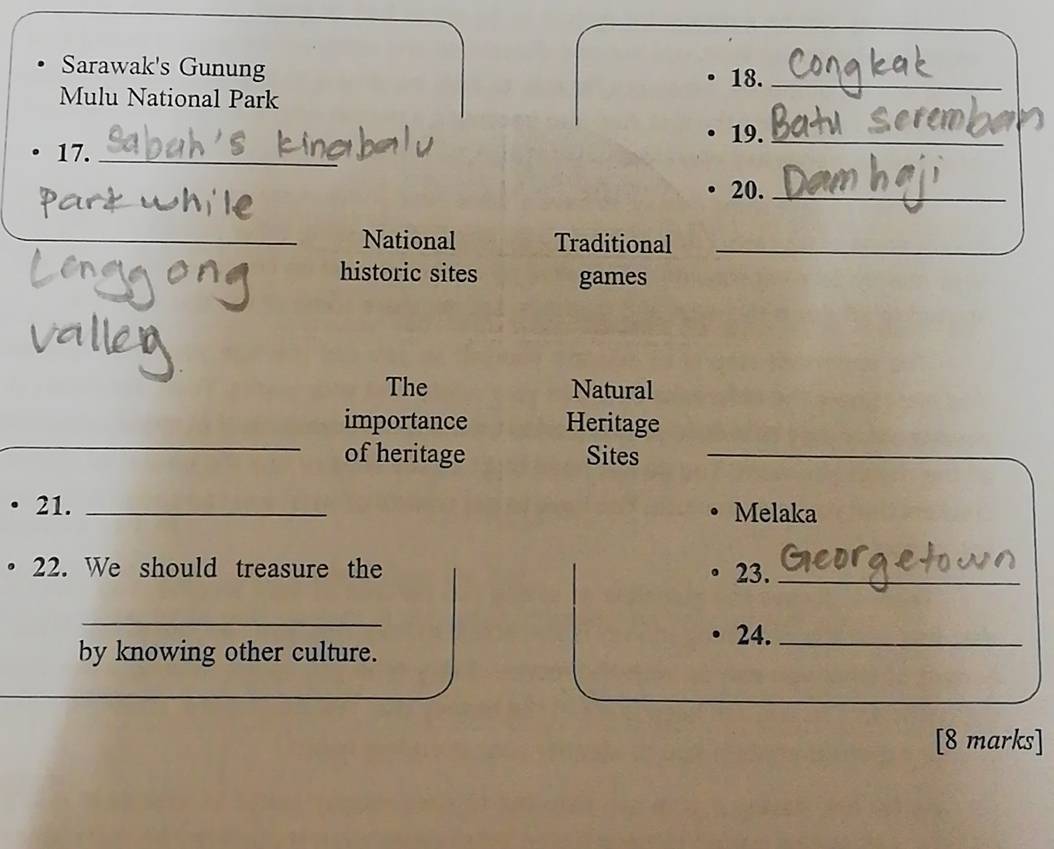 • Sarawak's Gunung
Mulu National Park
• 17. Sabah's kinabalu
park while
Lenggong
valley
• 18. Congkak
• 19. Batu seremban
• 20. Dam haji
National
historic sites
Traditional
games
The
importance
of heritage
Natural
Heritage
Sites
• 21.
• 22. We should treasure the
by knowing other culture.
• Melaka
• 23. Georgetown
• 24.
[8 marks]